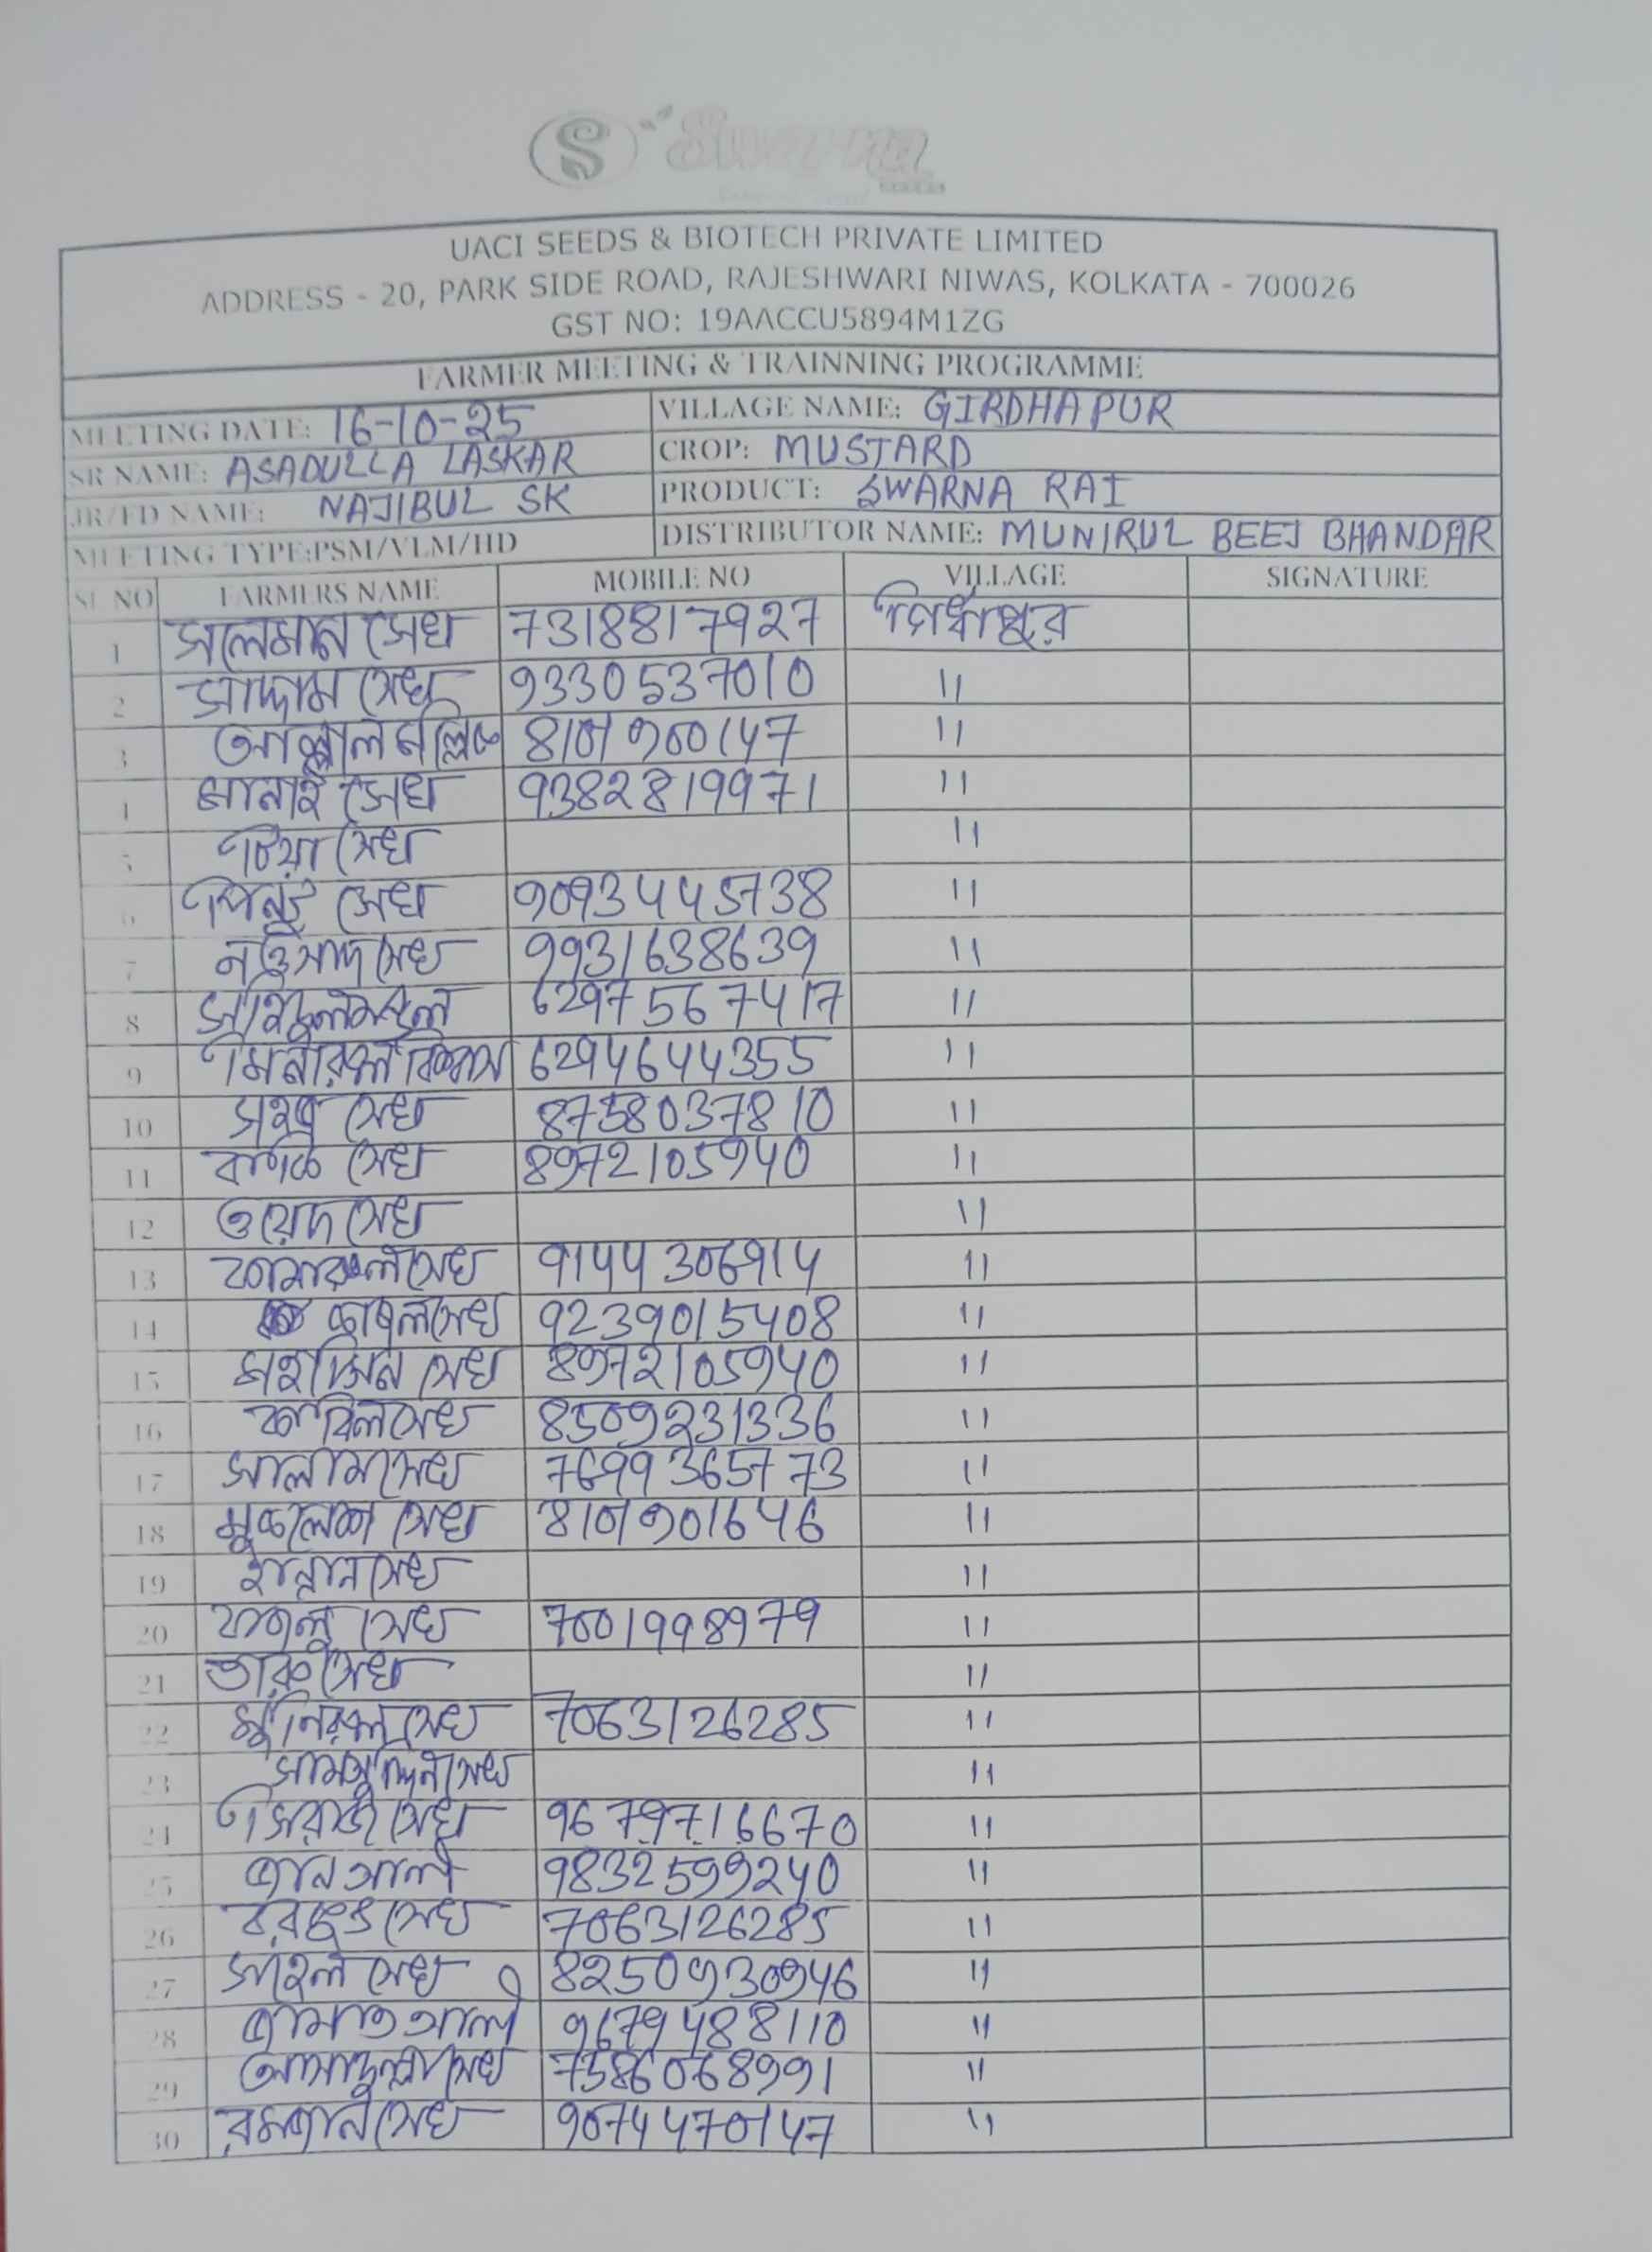 S Swarna
UACI SEEDS & BIOTECH PRIVATE LIMITED
ADDRESS - 20, PARK SIDE ROAD, RAJESHWARI NIWAS, KOLKATA - 700026
GST NO: 19AACCU5894M1ZG
FARMER MEETING & TRAINNING PROGRAMME
MEETING DATE: 16-10-25 VILLAGE NAME: GIRDHAPUR
SR NAME: ASADULLA LASKAR CROP: MUSTARD
JR/FD NAME: NAJIBUL SK PRODUCT: SWARNA RAI
MEETING TYPE:PSM/VLM/HD DISTRIBUTOR NAME: MUNIRUL BEEJ BHANDAR
SL NO FARMERS NAME MOBILE NO VILLAGE SIGNATURE
1 সলেমান সেখ 7318817927
2 সাদ্দাম সেখ 9330537010 "
3 মল্লিক 8101900147 "
4 সেখ 9382819971 "
5 সেখ "
6 পিন্টু সেখ 9093445738 "
7 নওসাদ সেখ 9931638639 "
8 6297567417 "
9 মিনারুল বিশ্বাস 6294644355 "
10 সেখ 8758037810 "
11 সেখ 8972105940 "
12 ওয়েদ সেখ "
13 কামারুল সেখ 9144306914 "
14 সেখ 9239015408 "
15 মহাসিন সেখ 8972105940 "
16 কাবিল সেখ 8509231336 "
17 সালাম সেখ 7699365773 "
18 সেখ 8101901646 "
19 হান্নান সেখ "
20 ফজলু সেখ 7001998979 "
21 সেখ "
22 মুনিরুল সেখ 7063126285 "
23 সামসুদ্দিন সেখ "
24 সিরাজ সেখ 9679716670 "
25 জান আলি 9832599240 "
26 সেখ 7063126285 "
27 সেখ 8250930946 "
28 আলী 9679488110 "
29 আসাদুল্লা সেখ 7586068991 "
30 রমজান সেখ 9074470147 "